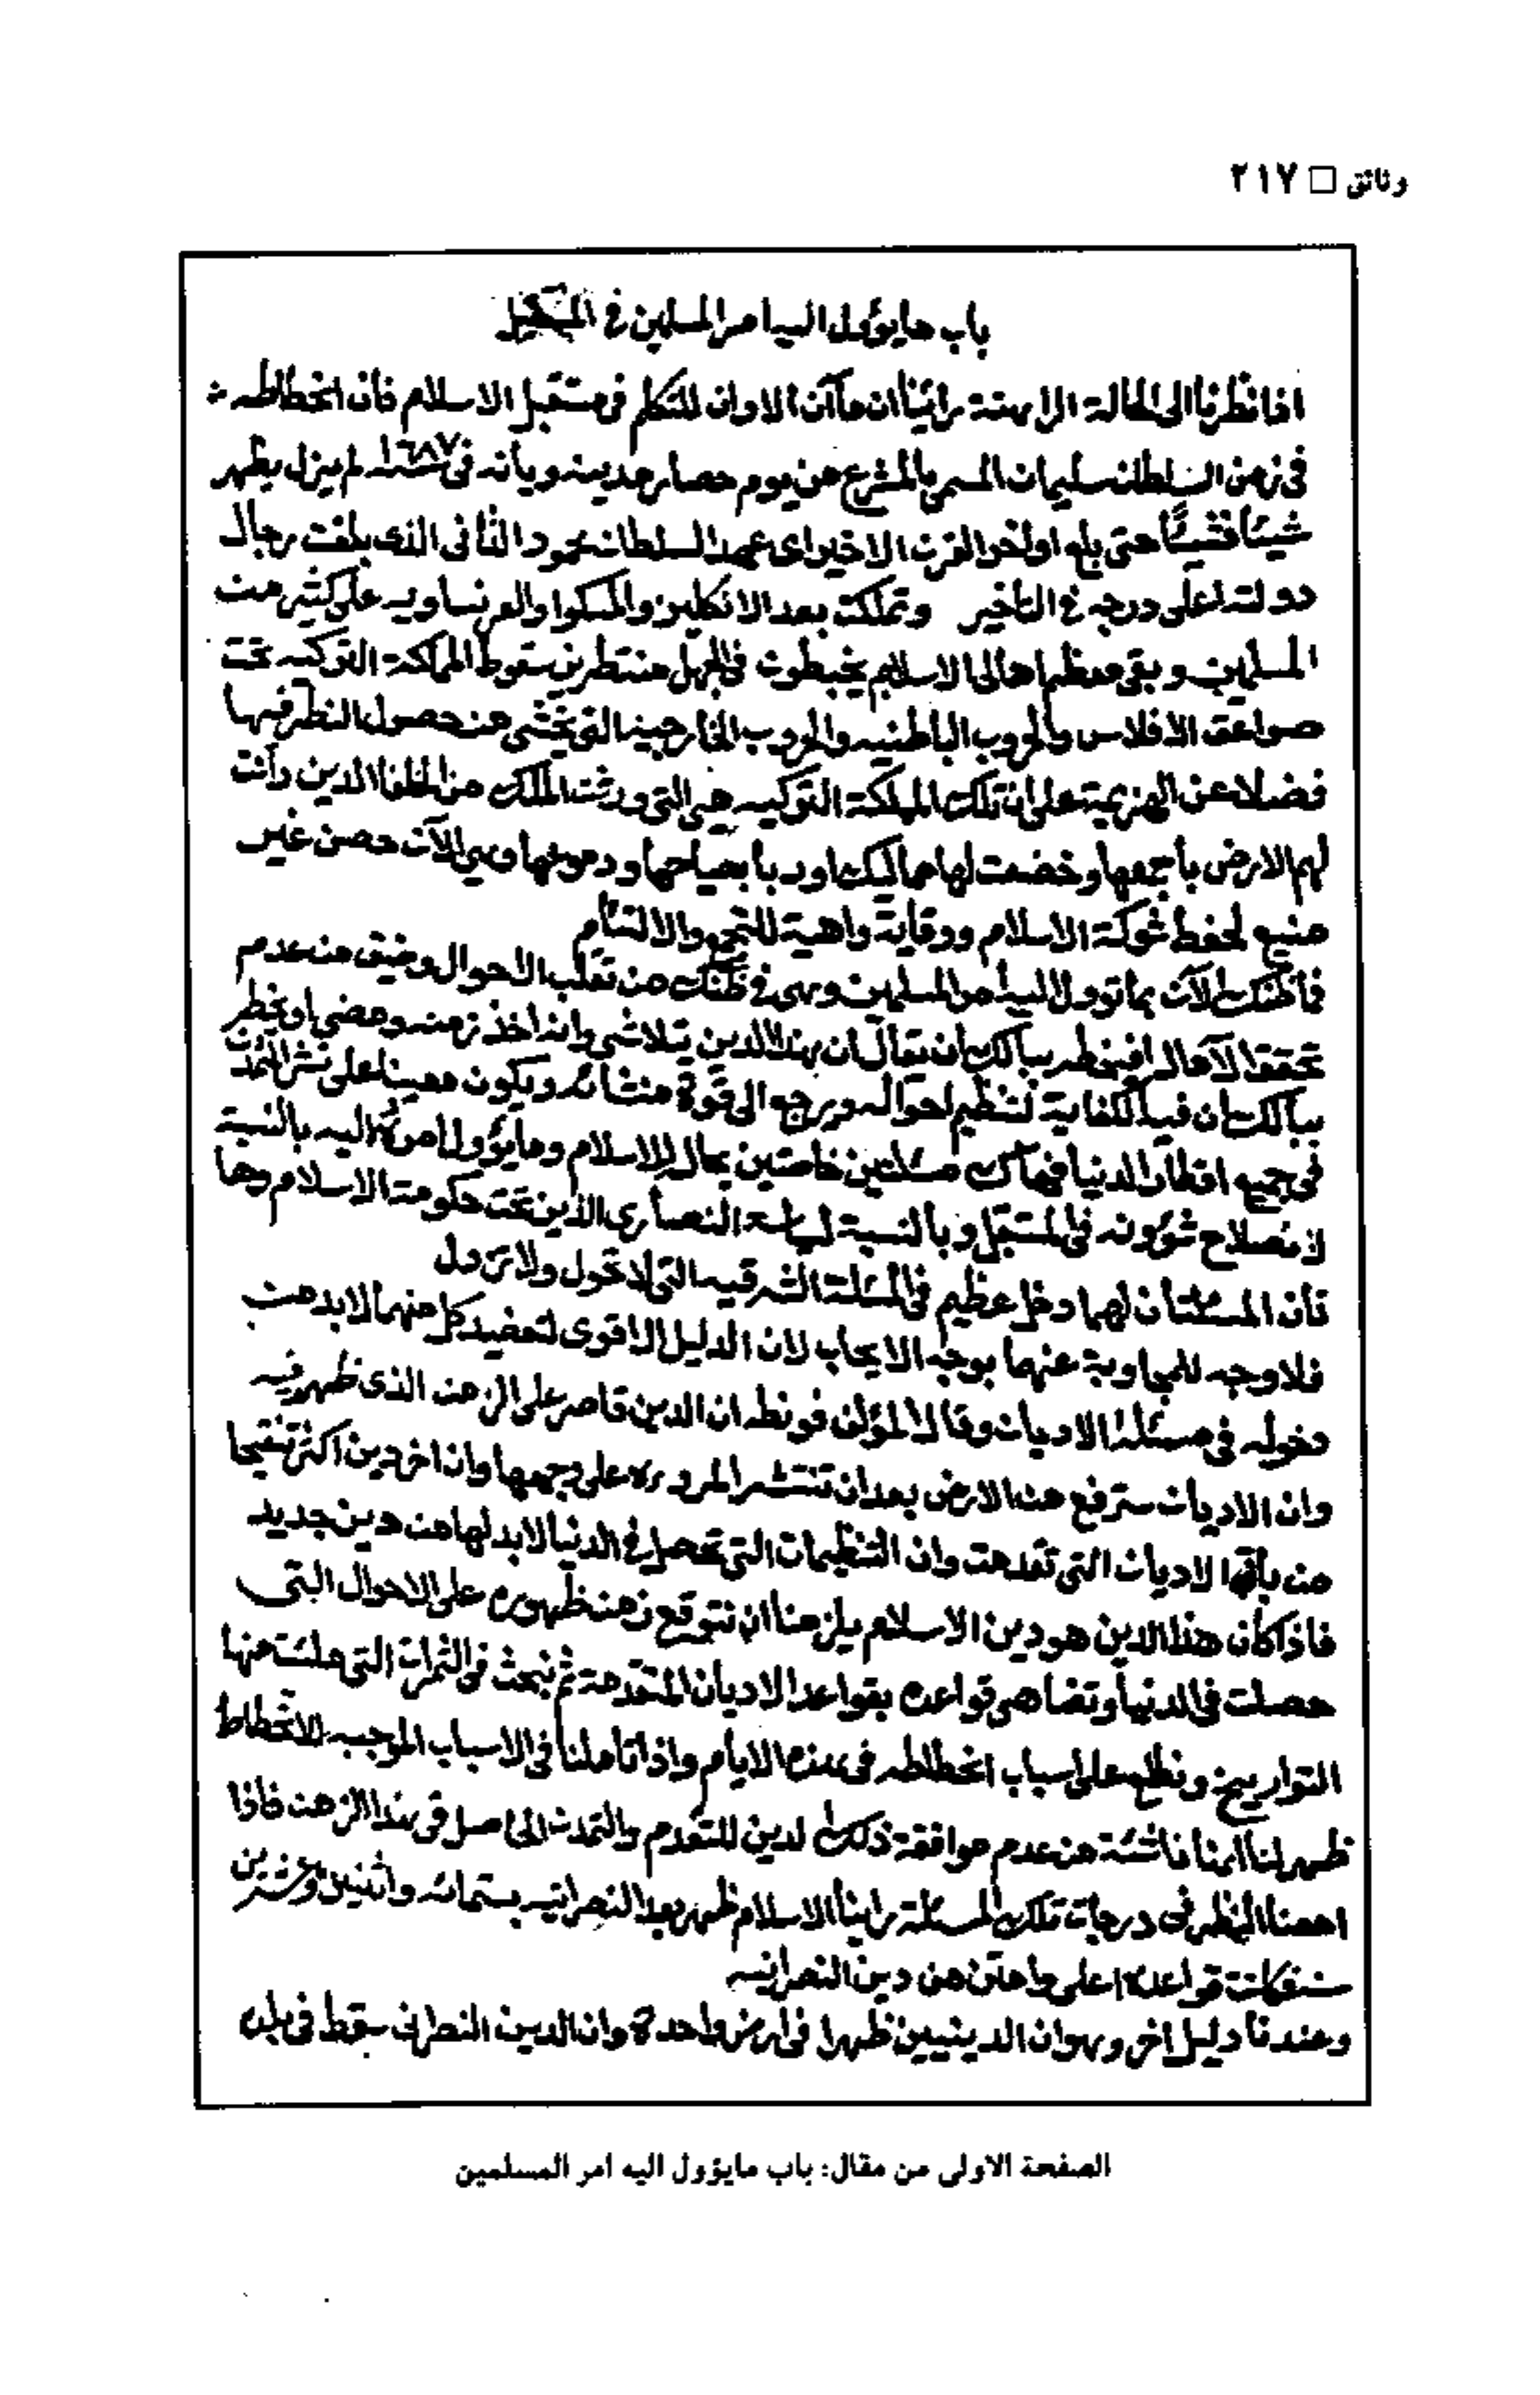 وثائق □ ٢١٧
باب ما يؤول اليه امر المسلمين في المستقبل
اذا نظرنا الى الحالة الراهنة رأينا ان ما آن الاوان للتكلم في مستقبل الاسلام فان انحطاطه
في زمن السلطان سليمان المسمى بالمشرع من يوم حصار مدينة ويانه في سنة ١٦٨٧ لم يزل يظهر
شيئا فشيئا حتى بلغ اواخر القرن الاخير اى عهد السلطان محمود الثانى الذى بلغت رجال
دولته اعلى درجه في التأخير وتملكت بعد الانكليز والمسكوا والفرنساويه على كثير من
المسلمين وبقى معظم اهالى الاسلام يخبطون في الجهل منتظرين سقوط المملكة التركيه تحت
صواعق الافلاس والحروب الباطنيه والحروب الخارجيه التى يخشى من حصول النظر فيها
فضلا عن الهزيمة على ان تلك المملكة التركيه هى التى ورثت الملك من الخلفا الذين دانت
لهم الارض بأجمعها وخضعت لها ممالك اوربا بصياحها ودعوتها وهى الآن حصن غير
منيع لحفظ شوكة الاسلام ووقاية واهية للتجمع والالتئام
فما ظنك الآن بما تؤول اليه امر المسلمين وهى في ظنك من تقلب الاحوال وضيق من عدم
تحقق الآمال افيخطر ببالك ان يقال ان هذا الدين يتلاشى وانه اخذ زمنه ومضى او يخطر
ببالك ان فيه الكفاية لتنظيم احواله ويرجع الى قوة منشائه ويكون معينا على نشر التمدن
في جميع اقطار الدنيا فهاك مسئلتين خاصتين بمال الاسلام وما يؤول امره اليه بالنسبة
لانصلاح شؤونه في المستقبل وبالنسبة لسياسة النصارى الذين تحت حكومة الاسلام وها
فان المسئلتان لهما دخل عظيم في المسئلة الشرقيه التى لا تحول ولا تزول
فلا وجه للمجاوبة عنهما بوجه الايجاب لان الدليل الاقوى لتعضيد كل منهما لابد من
دخوله في مسئلة الاديان وقال المؤلف فونطه ان الدين قاصر على الزمن الذى ظهر فيه
وان الاديان سترفع من الارض بعد ان تنتشر المروءه على وجهها وان اخر دين اكثر تنقيحا
من باقى الاديان التى تقدمت وان التنظيمات التى تحصل في الدنيا لابد لها من دين جديد
فاذا كان هذا الدين هو دين الاسلام يلزمنا ان نتوقع زمن ظهوره على الاحوال التى
حصلت في الدنيا وتضاهى قواعده بقواعد الاديان المتقدمة ثم نبحث في الثمرات التى ملئت منها
التواريخ ونطلع على اسباب انحطاطه في هذه الايام واذا تاملنا في الاسباب الموجبه للانحطاط
ظهر لنا انها ناشئة من عدم موافقة ذلك الدين للتقدم والتمدن الحاصل في هذا الزمن فاذا
امعنا النظر في درجات تلك المسئلة راينا الاسلام ظهر بعد النصرانيه بستمائه واثنين وعشرين
سنه فكانت قواعده اعلى واهتن من دين النصرانيه
وعندنا دليل اخر وهو ان الدينيين ظهرا في ارض واحدة وان الدين النصرانى سقط في بلده
الصفحة الاولى من مقال: باب مايؤول اليه امر المسلمين